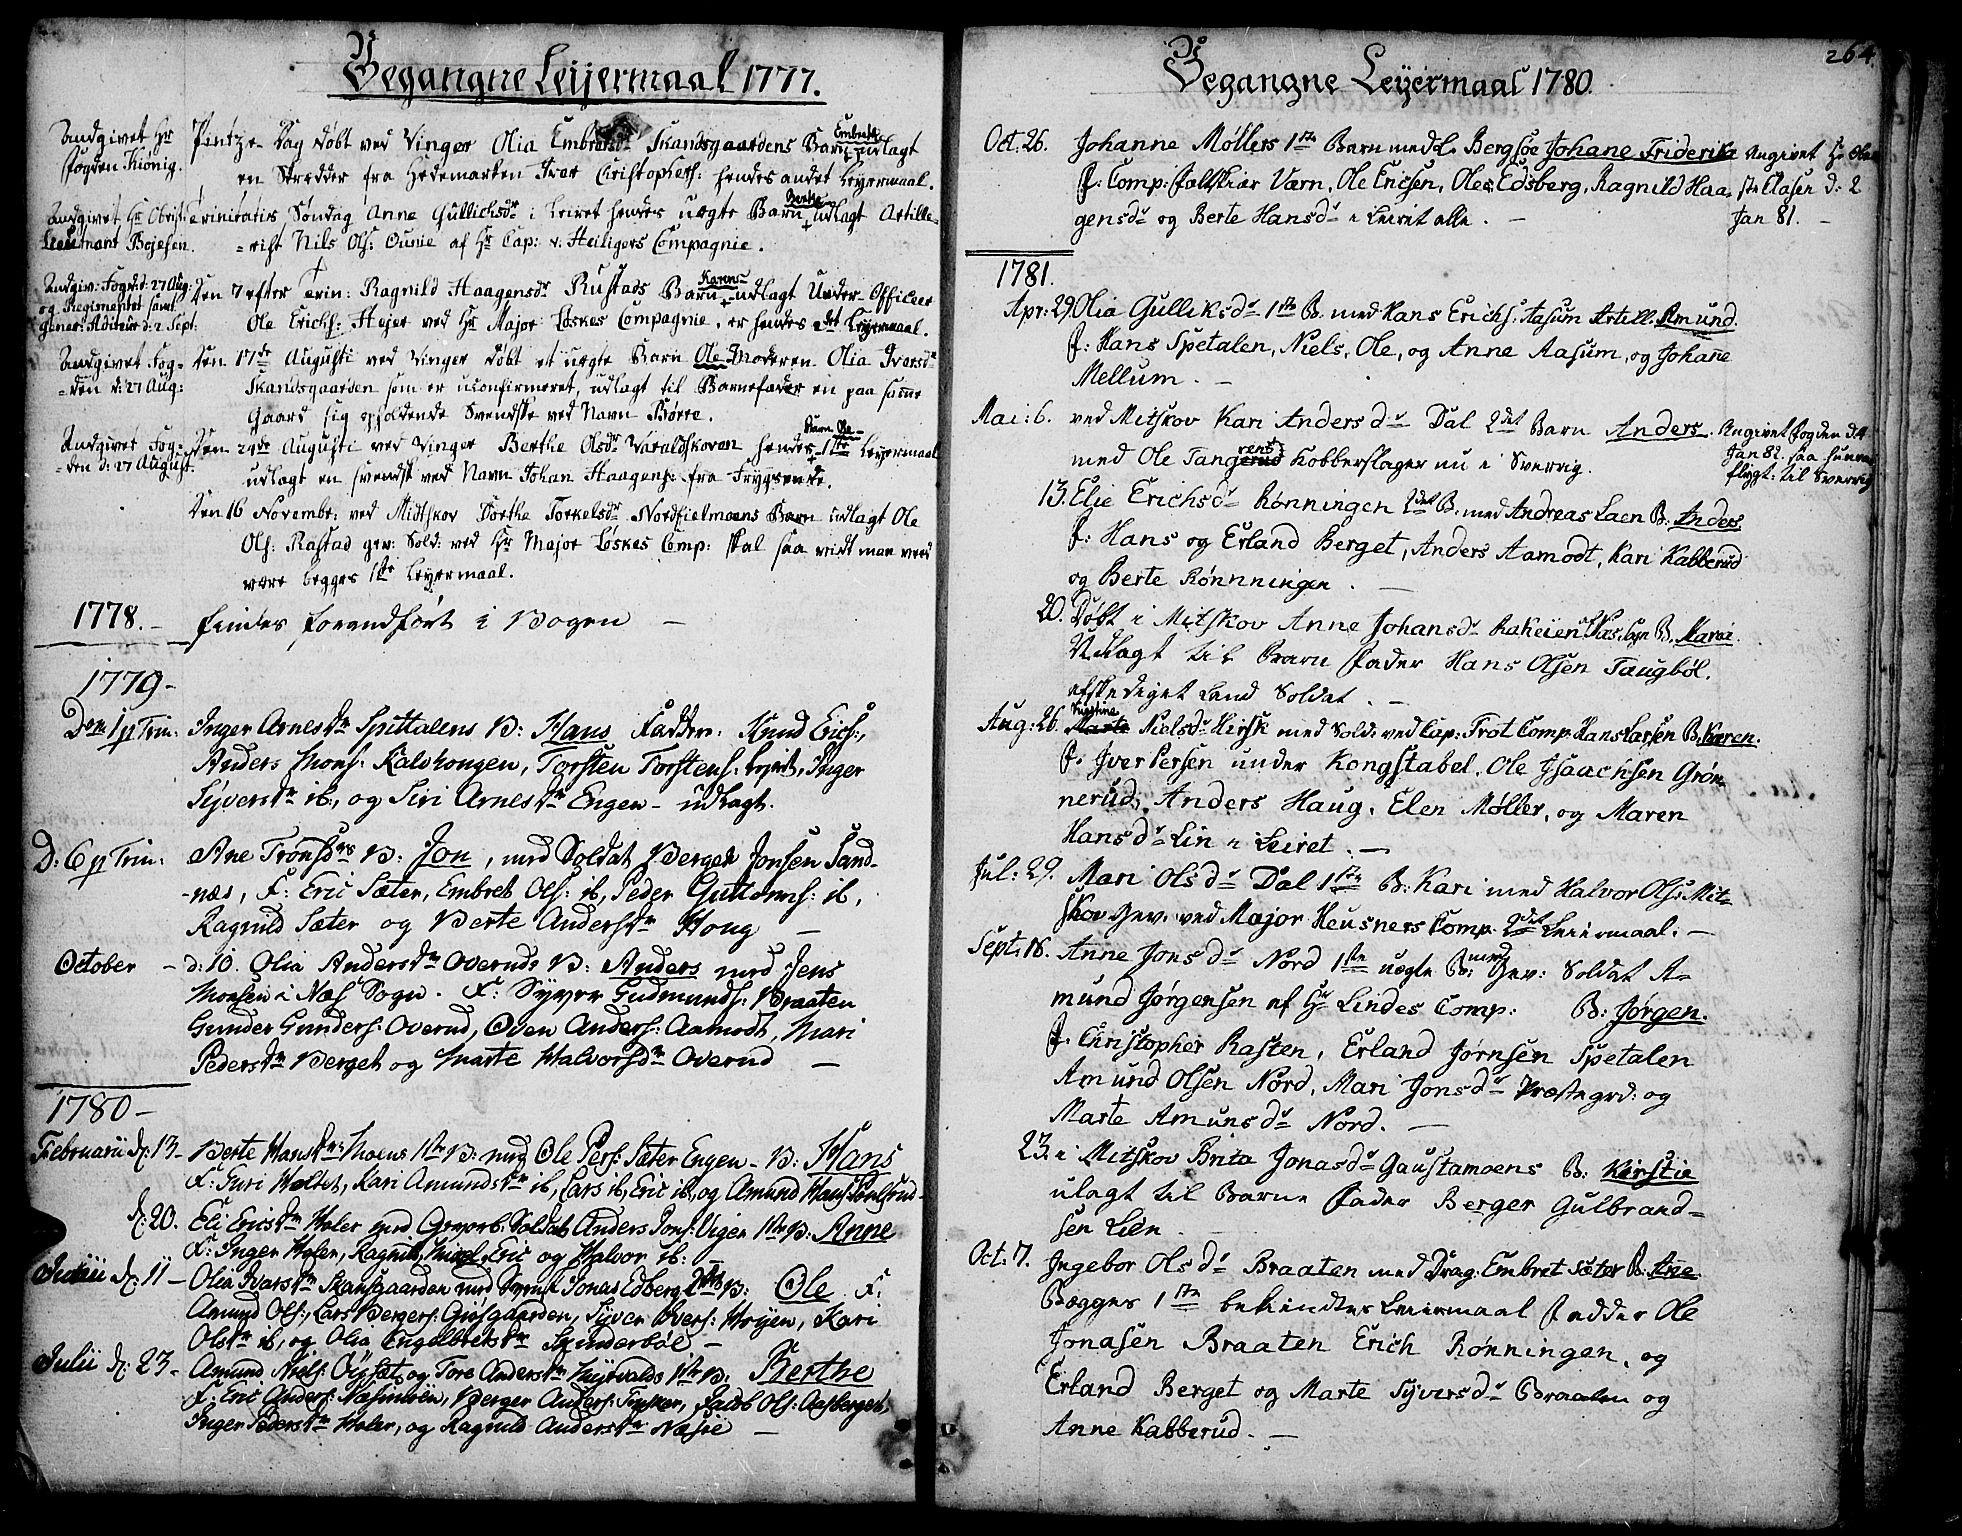 Begangne Leijermaal 1777.
Andgivet Hr Pintze Dag døbt ved Vinger Olia Embretsdr Skandsgaardens Barn Embret udlagt
Fogden Kiønig. en Skrædder fra Hedemarken Iver Christophers: hendes andet Leyermaal.
Andgivet Hr Obrist Trinitatis Søndag Anne Gullichsdr i Leiret hendes uægte Barn Berthe udlagt Artille-
Lieutnant Bojesen. -rist Nils Ols: Ounie af Hr Cap: v: Heiligers Compagnie.
Andgiv: Fogd: d: 27 Aug: Den 7 efter Trin: Ragnild Haagensdr Rustads Barn Karen udlagt Under-Officer
og Regimentet samt Ole Erichs: Hejer ved Hr Major Løskes Compagnie, er hendes 2det Leyermaal.
gener: Aditeur d: 2 Sept:
Andgivet Fog- Den 17de Augusti ved Vinger døbt et uægte Barn Ole Moderen Olia Ivarsdr
-den d: 27 Aug: Skandsgaarden som er uconfirmeret, udlagt til Barnefader en paa samme
Gaard sig opholdende Svendske ved Navn Börre.
Andgivet Fog- Den 24de Augusti ved Vinger Berthe Olsdr Varaldskovan hendes Barn Ole 1ste Leyermaal
-den d: 27 August. udlagt en svendsk ved Navn Johan Haagens: fra Frygsende.
Den 16 Novembr: ved Midtskov Dorthe Torkelsdr Nordfielmoens Barn udlagt Ole
Ols: Rastad gev: Sold: ved Hr Major Løskes Comp: skal saa vidt man veed
være begges 1ste Leyermaal.
1778. - findes forandført i Bogen -
1779 -
Dom 1 p Trin: Inger Arnesdr Spittalens B: Hans Faddere: Knud Erics:,
Anders Mons: Kalshougen, Torsten Torstens: Lejret, Inger
Syversdr ib:, og Siri Arnesdr Engen - udlagt.
D: 6 p Trin: Ane Tronsdrs B: Jon, med Soldat Berger Jonsen Sand-
-næs, F: Eric Sæter, Embret Ols: ib, Peder Guttorms: ib,
Ragnild Sæter og Berte Andersdr Houg -
October - d: 10. Olia Andersdr Overuds B: Anders med Jens
Monsen i Næs Sogn. F: Syver Gudmunds: Braaten
Gunder Gunders: Overud, Oven Anders: Aamodt, Mari
Pedersdr Berget og Marte Halvorsdr Overud -
1780 -
Februarii d: 13 - Berte Hansdr: Moens 1ste B: med Ole Pers: Sæter Engen - B: Hans
F: Guri Holtet, Kari Amundsdr ib, Lars ib, Eric ib, og Amund Hans: Poulsrud
d: 20. Eli Ericsdr Holer med Gevorb: Soldat Anders Jons: Viger 1ste B: Anne
F: Inger Holer, Ragnild, Eric og Halvor ib: -
d: 11 - Olia Ivarsdr Skansgaarden med Svensk Jonas Edberg 2det B: Ole F:
Amund Ols:, Lars Bergers: Giøsgaarden, Syver Overs: Moyen, Kari
Olsdr ib, og Olia Engelbretsdr Spinderbøl -
Julii d: 23 - Amund Niels: Öysæt og Tore Andersdr 1ste B: Berthe
F: Eric Anders: Næsmoen, Berger Anders: Trysker, Jacob Ols: Aasberget,
Inger Pedersdr Holer, og Ragnild Andersdr Næsie -
264.
Begangne Leyermaal 1780.
Oct: 26. Johanne Møllers 1ste Barn med dr Bergsøe Johane Friderika
F: Comp: Feltskiær Værn, Ole Ericsen, Ole Edsberg, Ragnild Haa-
gensdr og Berte Hansdr i Leiret alle. -
Angivet Hr Ober
Clasen d: 2
Jan 81. -
1781.
Apr: 29 Olia Gulliksdr 1ste B. med Hans Erichs: Aasum Artill. Amund.
F: Hans Spetalen, Niels, Ole, og Anne Aasum, og Johane
Mellum. -
Mai: 6. ved Mitskov Kari Andersdr Dal 2det Barn Anders
med Ole Tangerud rens Kobberslager nu i Sverrig.
Angivet Fogden d. 4
Jan 82. saa
flygt: til Sverrig
13. Elie Erichsdr Rønningen 2det B. med Andreas Laen B: Anders
F: Hans og Erland Berget, Anders Aamodt, Kari Kabberud
og Berte Rønnningen. -
20. Døbt i Mitskov Anne Johansdr Rakeien B. Mari.
Udlagt til Barn Fader Hans Olsen Taugbøl.
afskediget Land Soldat. -
Aug: 26. Marte Kirstine Nielsdr Kirsk med Sold: ved Cap: Frot Comp. Hans Larsen B. Karen.
F. Iver Persen under Kongstabel. Ole Isaachsen Grøn
nerud, Anders Haug, Elen Møller, og Maren
Hansdr Lin i Leiret. -
Jul: 29. Mari Olsdr Dal 1ste B: Kari med Halvor Ols: Mit-
skov Gev. ved Major Heusners Comp. 2det Leiermaal. -
Sept: 16. Anne Jonsdr Nord 1ste uægte B: med Gev: Soldat A-
mund Jørgensen af Hr Lindes Comp: B: Jørgen.
F. Christopher Rasten, Erland Jørnsen Spetalen
Amund Olsen Nord, Mari Jonsdr Præstegrd: og
Marte Amunsdr Nord. -
23. i Mitskov Brita Jonasdr Gaustamoens B: Kirstie
ulagt til Barne Fader Berger Gulbrand-
sen Lien -
Oct: 7. Ingebor Olsdr Braaten med Drag: Embret sæter B: Ane.
Begges 1ste bekindte Leiermaal Fadder Ole
Jonasen Braaten Erich Rønningen, og
Erland Berget og Marte Syversdr Braaten og
Anne Kabberud. -